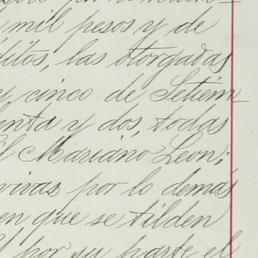 mil pesos y de
ditos, las otorgadas
y cinco de Setiem-
enta y dos, todas
el Mariano Leon;
vivas por lo demás
en que se tilden
por su parte el